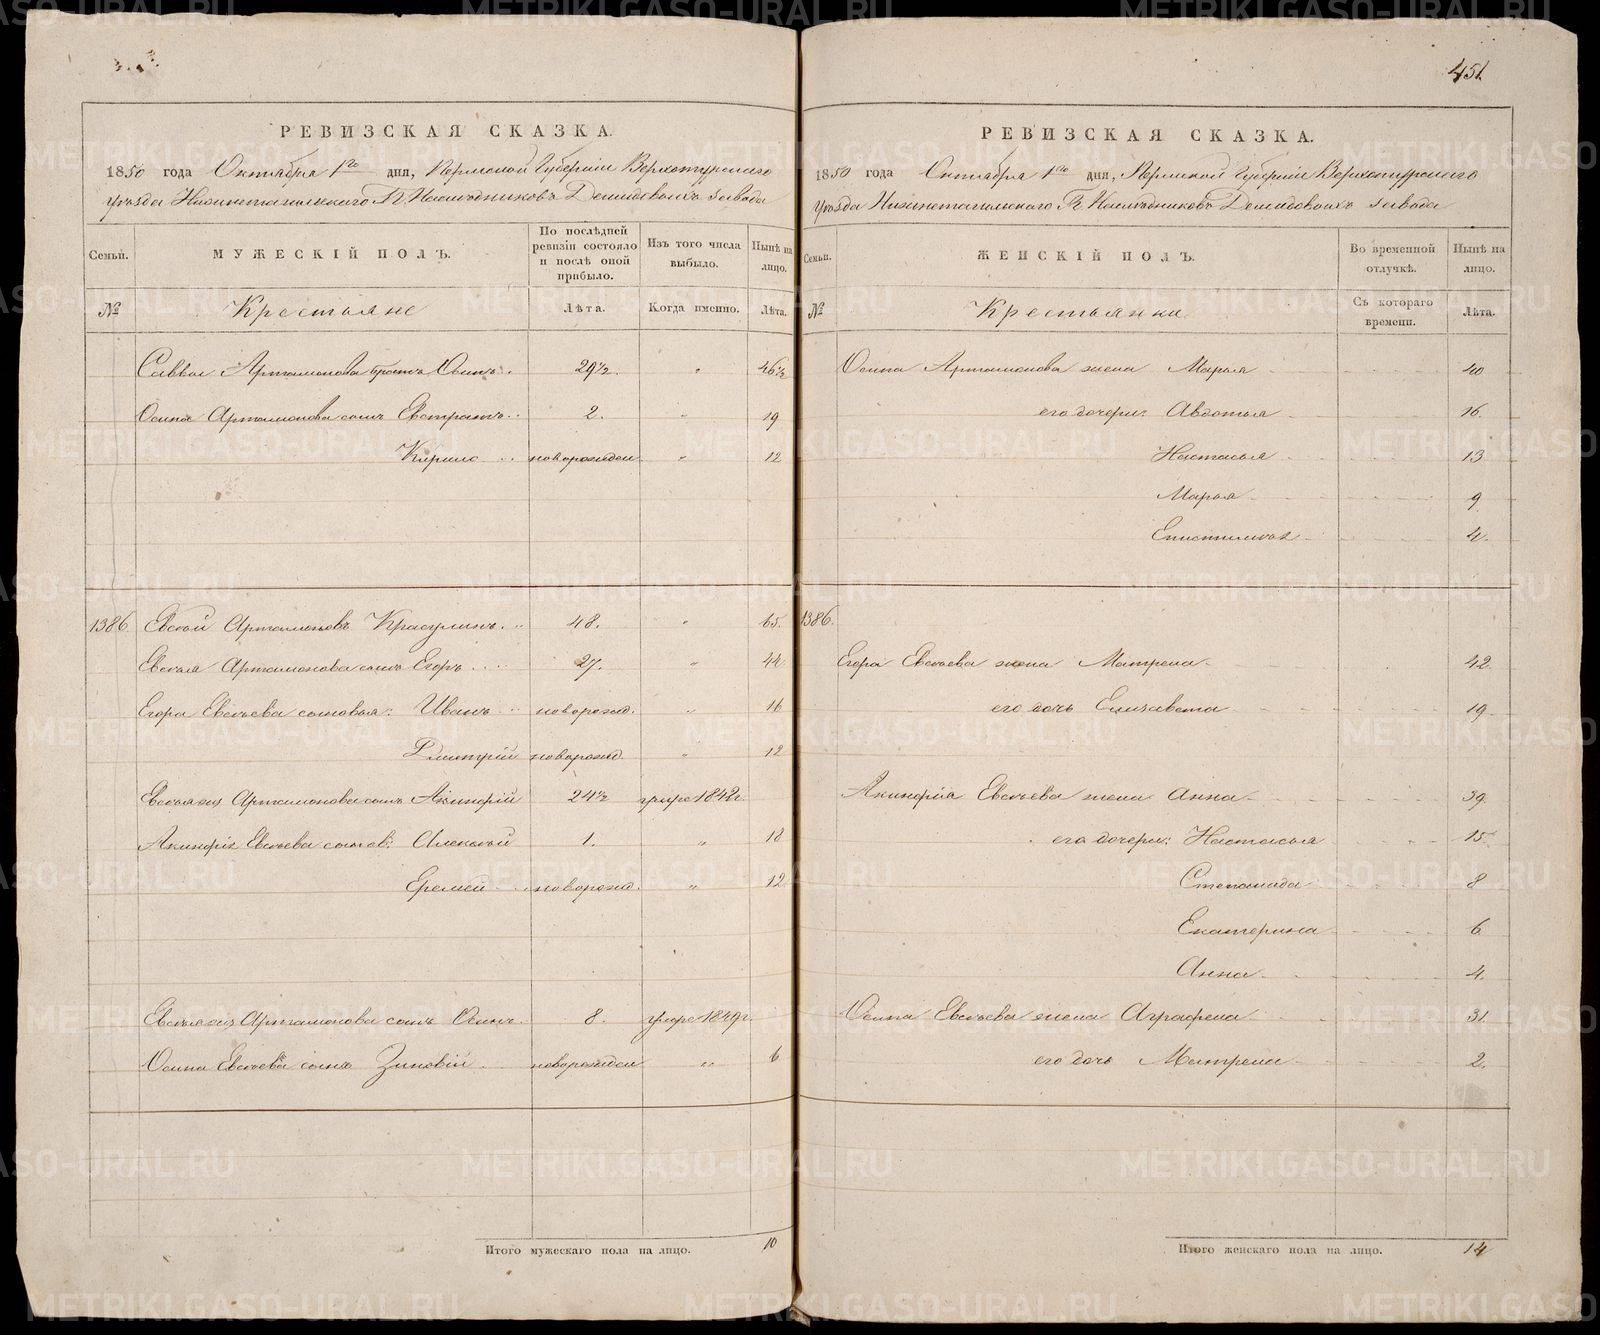 451
РЕВИЗСКАЯ СКАЗКА.
1850 года Октября 1го дня, Пермской Губерніи Верхотурскаго
уѣзда Нижнетагильскаго Гг. Наслѣдниковъ Демидовыхъ завода
Семьи.
МУЖЕСКІЙ ПОЛЪ.
По послѣдней ревизіи состояло и послѣ оной прибыло.
Изъ того числа выбыло.
Нынѣ на лицо.
№ Крестьяне Лѣта. Когда именно. Лѣта.
Саввы Артамонова братъ Осипъ 29½ " 46½
Осипа Артамонова сынъ Евстратъ 2. " 19
Кирило новорожден " 12
1386 Евсей Артамоновъ Красулинъ 48. " 65.
Евсея Артамонова сынъ Егоръ 27. " 44
Егора Евсеева сыновья: Иванъ новорожд. " 16
Дмитрій новорожд " 12
Артамонова сынъ Акинфій 24½ умре 1842г.
Акинфія Евсеева сынов: Алексей 1. " 18
Еремей новорожд. " 12
Артамонова сынъ Осипъ 8. умре 1849г.
Осипа Евсеева сынъ Зиновій новорожден " 6
Итого мужескаго пола на лицо. 10
РЕВИЗСКАЯ СКАЗКА.
1850 года Октября 1го дня, Пермской Губерніи Верхотурскаго
уѣзда Нижнетагильскаго Гг. Наслѣдниковъ Демидовыхъ завода
Семьи.
ЖЕНСКІЙ ПОЛЪ.
Во временной отлучкѣ.
Нынѣ на лицо.
№ Крестьянки Съ котораго времени. Лѣта.
Осипа Артамонова жена Марья 40
его дочери: Авдотья 16.
Настасья 13
Марья 9
Епистимія 4.
1386.
Егора Евсеева жена Матрена 42
его дочь Елизавета 19
Акинфія Евсеева жена Анна 39.
его дочери: Настасья 15
Степанида 8
Екатерина 6
Анна 4
Осипа Евсеева жена Аграфена 31
его дочь Матрена 2.
Итого женскаго пола на лицо. 14
METRIKI.GASO-URAL.RU